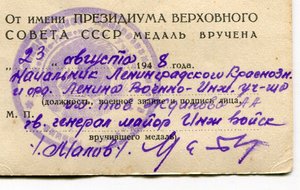 От имени ПРЕЗИДИУМА ВЕРХОВНОГО
СОВЕТА СССР МЕДАЛЬ ВРУЧЕНА
„23" августа 1948 года.
Начальник Ленинградского Краснозн.
и орд. Ленина Военно-Инж. уч-ща
(должность, военное звание и подпись лица,
М. П. гв. генерал майор Инж войск
вручившего медаль)